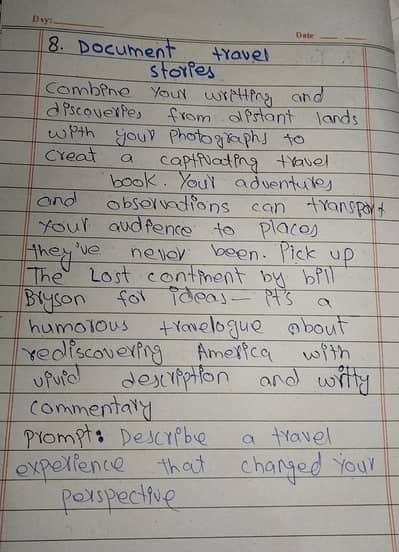 Day:
Date
8. Document travel
stories
Combine your writting and
discoveries from distant lands
with your photographs to
creat a captivating travel
book. Your adventures
and observations can transport
your audience to places
they've never been. Pick up
The Lost continent by bill
Bryson for ideas— it's a
humorous travelogue about
rediscovering America with
vivid description and witty
commentary
Prompt: Describe a travel
experience that changed your
perspective